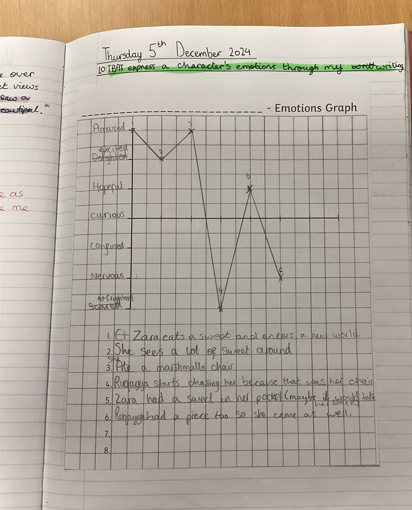 e over
t views
saw a
beautiful.
e as
e me
Thursday 5th December 2024
LO: TBAT express a character's emotions through my writing
- Emotions Graph
Amazed
Excited
Delighted
Hopeful
Curious
Confused
Nervous
Scared
1. Zara eats a sweet and enters a new world.
2. She sees a lot of sweet around
She
3. Ate a marshmallo chair
4. starts chasing her because that was her chair
5. Zara had a sweet in her pocket (maybe it would
6. had a piece too so she came as well.
7
8